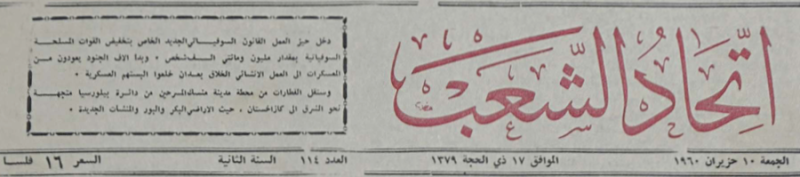 اتحاد الشعب
دخل حيز العمل القانون السوفياتي الجديد الخاص بتخفيض القوات المسلحة
السوفياتية بمقدار مليون ومائتي الف شخص • وبدا الاف الجنود يعودون من
المعسكرات الى العمل الانشائي الخلاق بعدان خلعوا البستهم العسكرية •
وستقل القطارات من محطة مدينة منسك المسرحين من دائرة بيلورسيا متجهة
نحو الشرق الى كازاخستان ، حيث الاراضي البكر والبور والمنشآت الجديدة •
الجمعة ١٠ حزيران ١٩٦٠ الموافق ١٧ ذي الحجة ١٣٧٩ العدد ١١٤ السنة الثانية السعر ١٦ فلسا